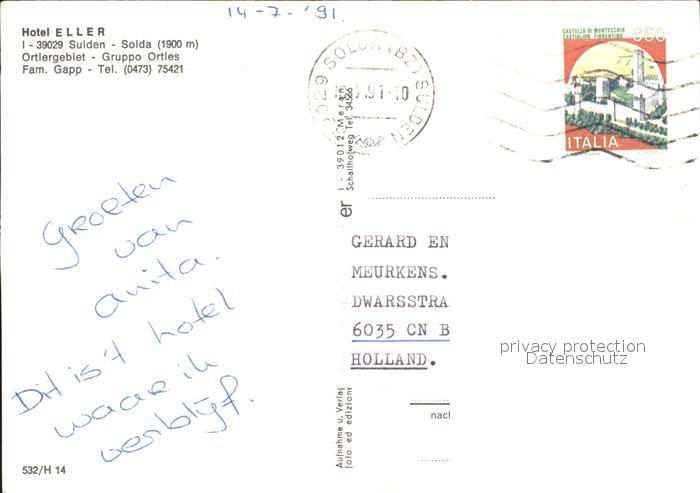 14-7-'91.
Hotel ELLER
I - 39029 Sulden - Solda (1900 m)
Ortlergebiet - Gruppo Ortles
Fam. Gapp - Tel. (0473) 75421
39029 SOLDA (BZ) SULDEN
7.91-10
CASTELLO DI MONTECCHIO
CASTIGLION FIORENTINO
650
ITALIA
I - 39012 Meran
Schallhofweg Tel. 34566
er
Groeten
van
anita.
Dit is 't hotel
waar ik
verblijf.
GERARD EN
MEURKENS.
DWARSSTRA
6035 CN B
HOLLAND.
privacy protection
Datenschutz
nach
Aufnahme u. Verlag
foto ed edizione
532/H 14